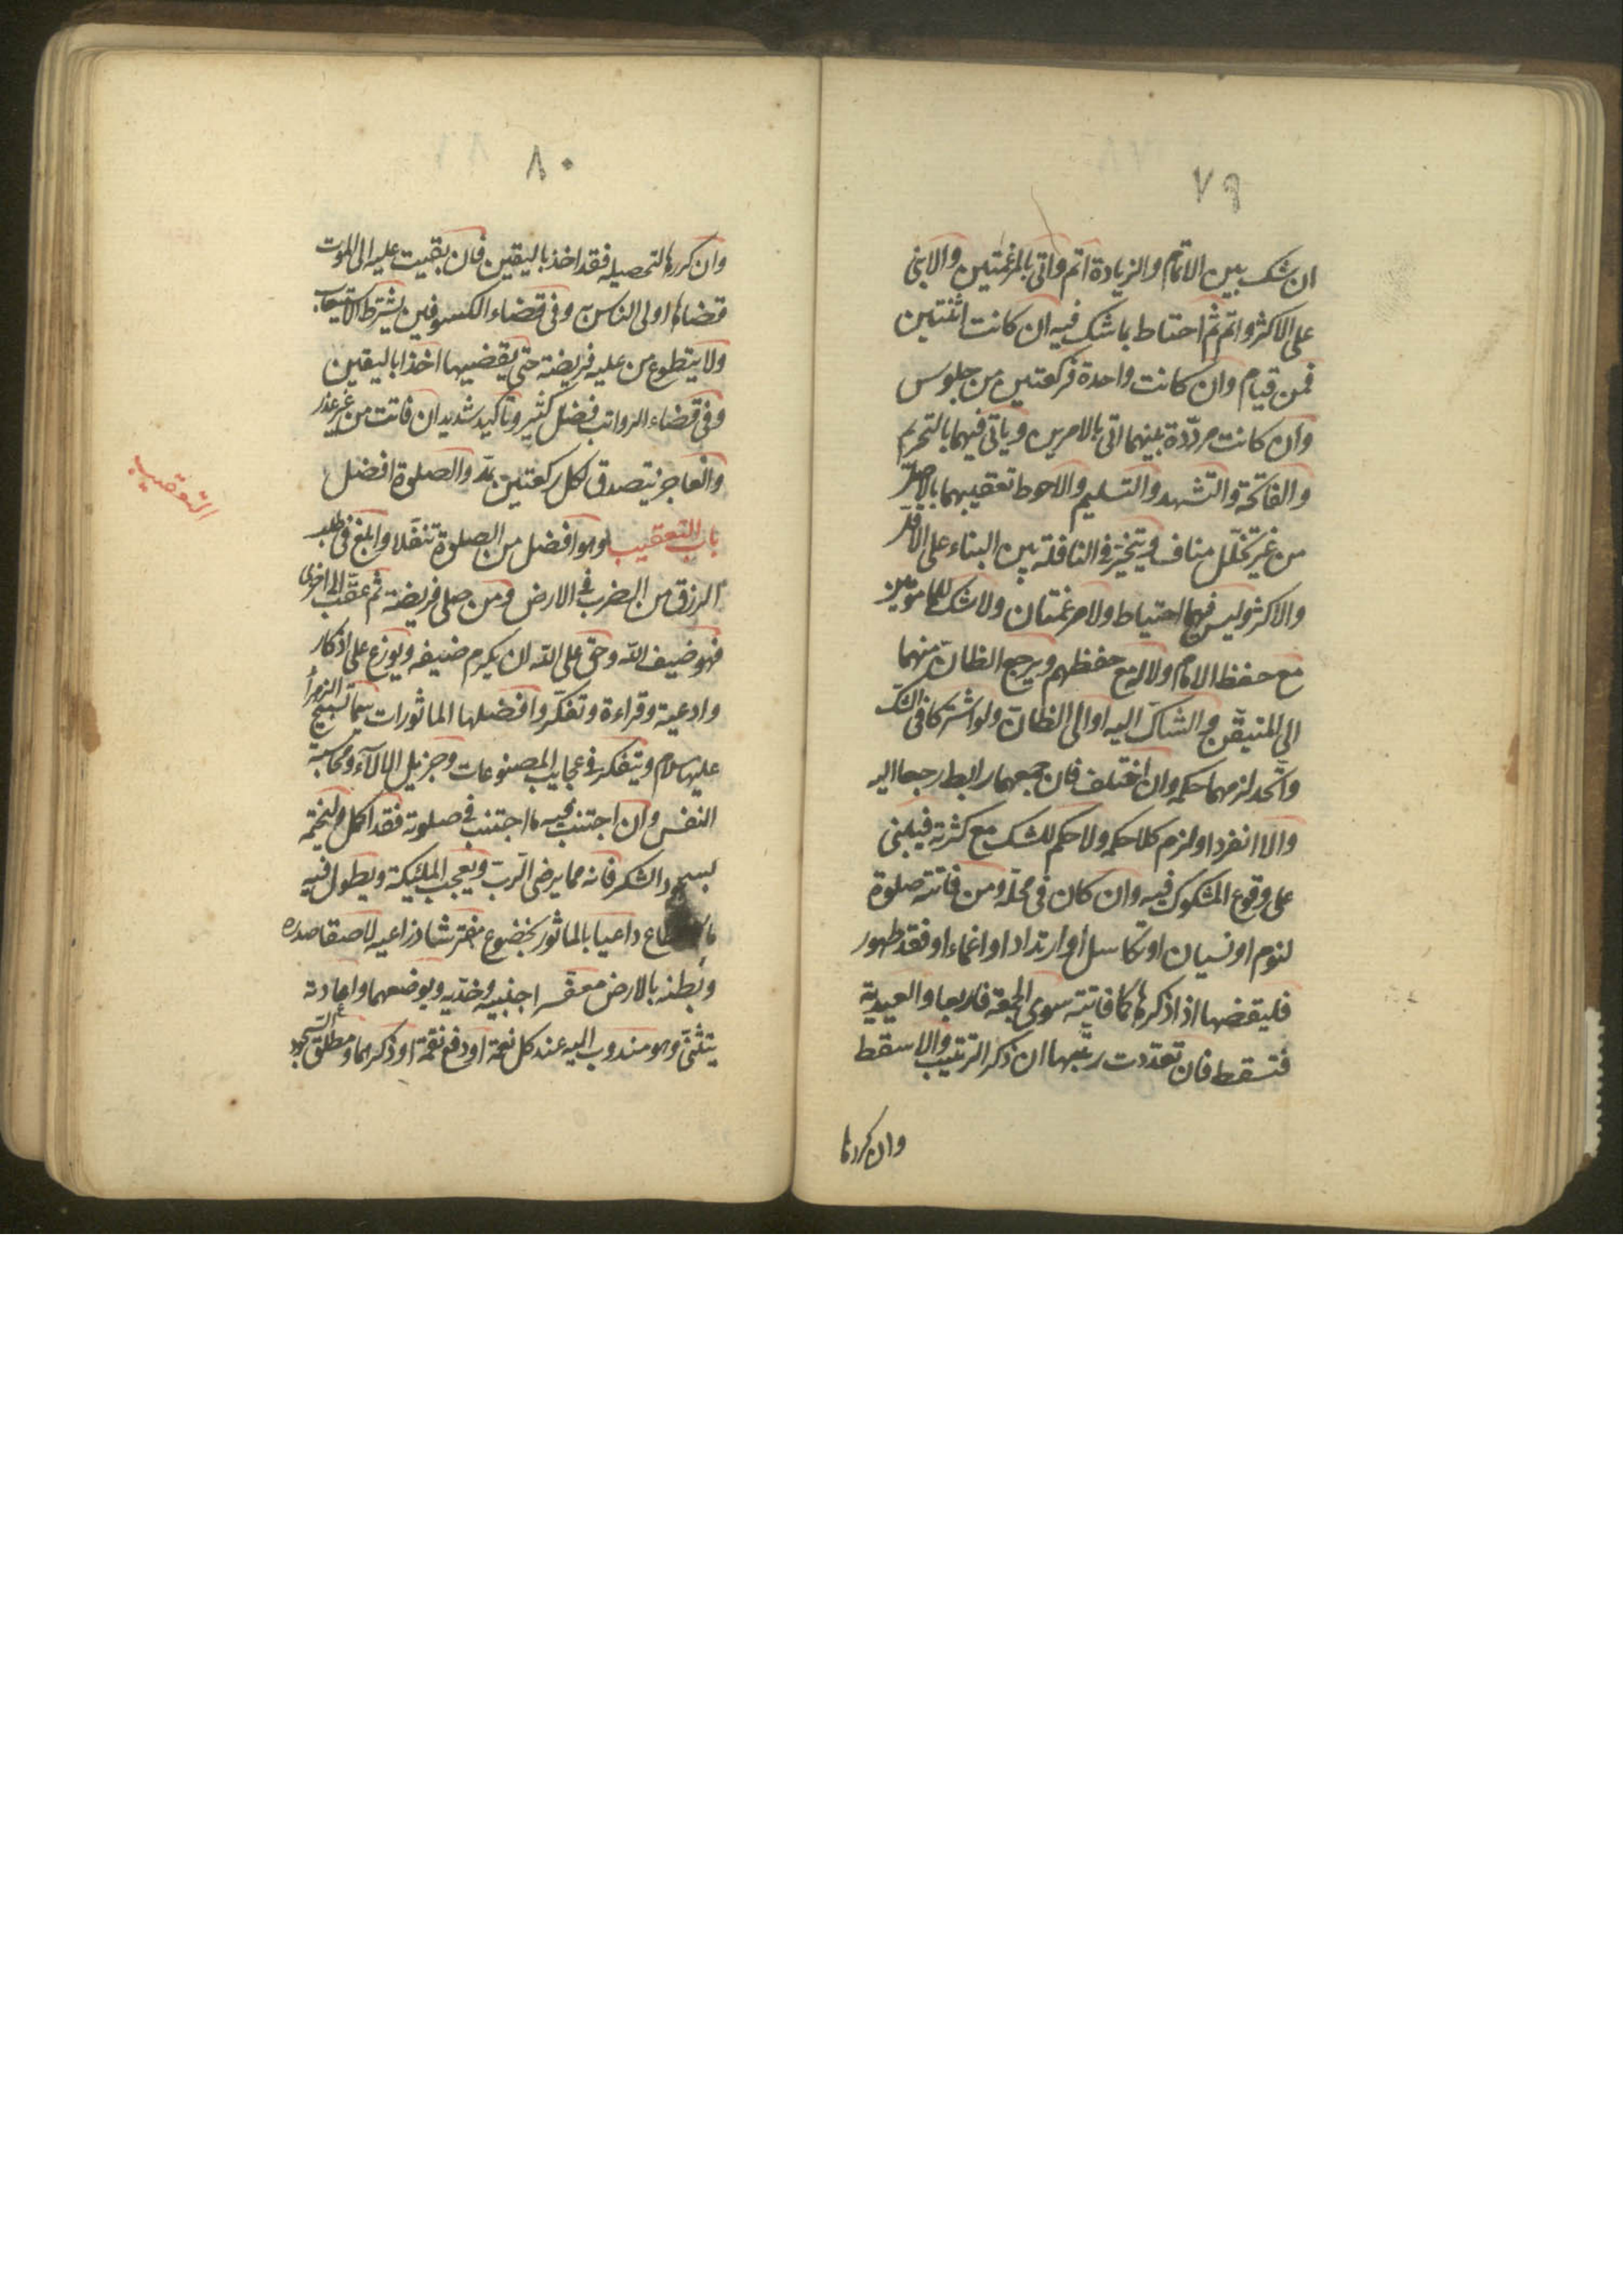 ٧٩
ان شك بين الاتمام والزيادة اتم واتى بالمرغمتين والا بنى
على الاكثر واتم ثم احتاط بما شك فيه ان كانت اثنتين
فمن قيام وان كانت واحدة فركعتين من جلوس
وان كانت مردّدة بينهما اتى بالامرين وياتى فيهما بالتحريم
والفاتحة والتشهد والتسليم والاحوط تعقيبهما بالاصل
من غير تخلّل مناف ويتخير فى النافلة بين البناء على الاقل
والاكثر وليس فيها احتياط ولا مرغمتان ولا شك للمامومين
مع حفظ الامام ولا له مع حفظهم ويرجع الظانّ منهما
الى المتيقّن والشاكّ اليه او الى الظانّ ولو اشتركا فى الشك
واتّحد لزمهما حكمه وان اختلف فان جمعهما رابط رجعا اليه
والا انفردا ولزم كلا حكمه ولا حكم للشك مع كثرته فيبنى
على وقوع المشكوك فيه وان كان فى محلّه ومن فاتته صلوة
لنوم او نسيان او تكاسل او ارتداد او اغماء او فقد طهور
فليقضها اذا ذكرها كما فاتته سوى الجمعة فاربعا والعيدية
فتسقط فان تعدّدت رتّبها ان ذكر الترتيب والا سقط
وان كررها
٨٠
وان كررها لتحصيله فقد اخذ باليقين فان بقيت عليه الى الموت
قضاها اولى الناس به وفى قضاء الكسوفين يشترط الاستيعاب
ولا يتطوع من عليه فريضة حتى يقضيها اخذا باليقين
وفى قضاء الرواتب فضل كثير وتاكيد شديد ان فاتت من غير عذر
والعاجز يتصدق لكل ركعتين بمدّ والصلوة افضل
التعقيب
باب التعقيب وهو افضل من الصلوة تنفّلا وابلغ فى طلب
الرزق من الضرب فى الارض ومن صلى فريضة ثم عقّب الى اخرى
فهو ضيف الله وحق على الله ان يكرم ضيفه ويوزع على اذكار
وادعية وقراءة وتفكّر وافضلها الماثورات سيما تسبيح الزهرا
عليها سلام ويتفكر فى عجايب المصنوعات وجزيل الالآء ومحاسبة
النفس وان اجتنب فيه ما اجتنب فى صلوته فقد اكمل وليختمه
بسجود الشكر فانه مما يرضى الرّب ويعجب الملئيكة ويطول فيه
داعيا بالماثور بخضوع مفترشا ذراعيه لاصقا صدره
وبطنه بالارض معفرا جنبيه وخدّيه وبوضعهما واعادته
يتثنّى وهو مندوب اليه عند كل نعمة او دفع نقمة او ذكرهما ومطلق السجود